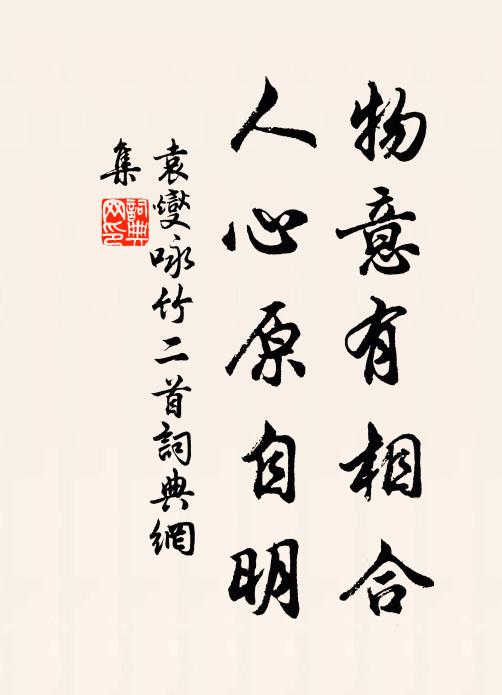 物意有相合
人心原自明
袁燮咏竹二首詞典網
集
詞典
网印